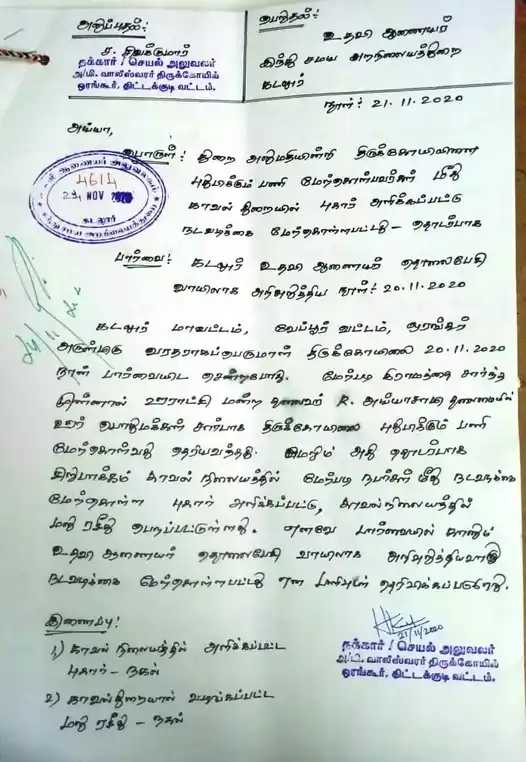 அனுப்புதல்:
ச. சிவக்குமார்
தக்கார் / செயல் அலுவலர்
அ/மி. வாலீஸ்வரர் திருக்கோயில்
ஒரங்கூர், திட்டக்குடி வட்டம்.
பெறுதல்:
உதவி ஆணையர்
இந்து சமய அறநிலையத்துறை
கடலூர்
நாள்: 21.11.2020
அய்யா,
பொருள்: துறை அனுமதியின்றி திருக்கோயிலினை
புதுப்பிக்கும் பணி மேற்கொள்பவர்கள் மீது
காவல் துறையில் புகார் அளிக்கப்பட்டு
நடவடிக்கை மேற்கொள்ளபட்டது - தொடர்பாக
4614
24 NOV 2020
கடலூர்
பார்வை: கடலூர் உதவி ஆணையர் தொலைபேசி
வாயிலாக அறிவுறித்திய நாள்: 20.11.2020
கடலூர் மாவட்டம், வேப்பூர் வட்டம்,
அருள்மிகு வரதராசப்பெருமாள் திருக்கோயிலை 20.11.2020
நாள் பார்வையிட சென்றபோது. மேற்படி கிராமத்தை சார்ந்த
முன்னாள் ஊராட்சி மன்ற தலைவர் R. அய்யாசாமி தலைமையில்
ஊர் பொதுமக்கள் சார்பாக திருக்கோயிலை புதுபிக்கும் பணி
மேற்கொள்வது தெரியவந்தது. மேலும் அது தொடர்பாக
சிறுபாக்கம் காவல் நிலையத்தில் மேற்படி நபர்கள் மீது நடவடிக்கை
மேற்கொள்ள புகார் அளிக்கப்பட்டு, காவல்நிலையத்தில்
மனு ரசீது பெறப்பட்டுள்ளது. எனவே பார்வையில் காணும்
உதவி ஆணையர் தொலைபேசி வாயிலாக அறிவுறித்தியவாறு
நடவடிக்கை மேற்கொள்ளபட்டது என பணிவுடன் தெரிவிக்கப்படுகிறது.
இணைப்பு:
1) காவல் நிலையத்தில் அளிக்கப்பட்ட
புகார் - நகல்
2) காவல்துறையால் வழங்கப்பட்ட
மனு ரசீது - நகல்
21/11/2020
தக்கார் / செயல் அலுவலர்
அ/மி. வாலீஸ்வரர் திருக்கோயில்
ஒரங்கூர், திட்டக்குடி வட்டம்.